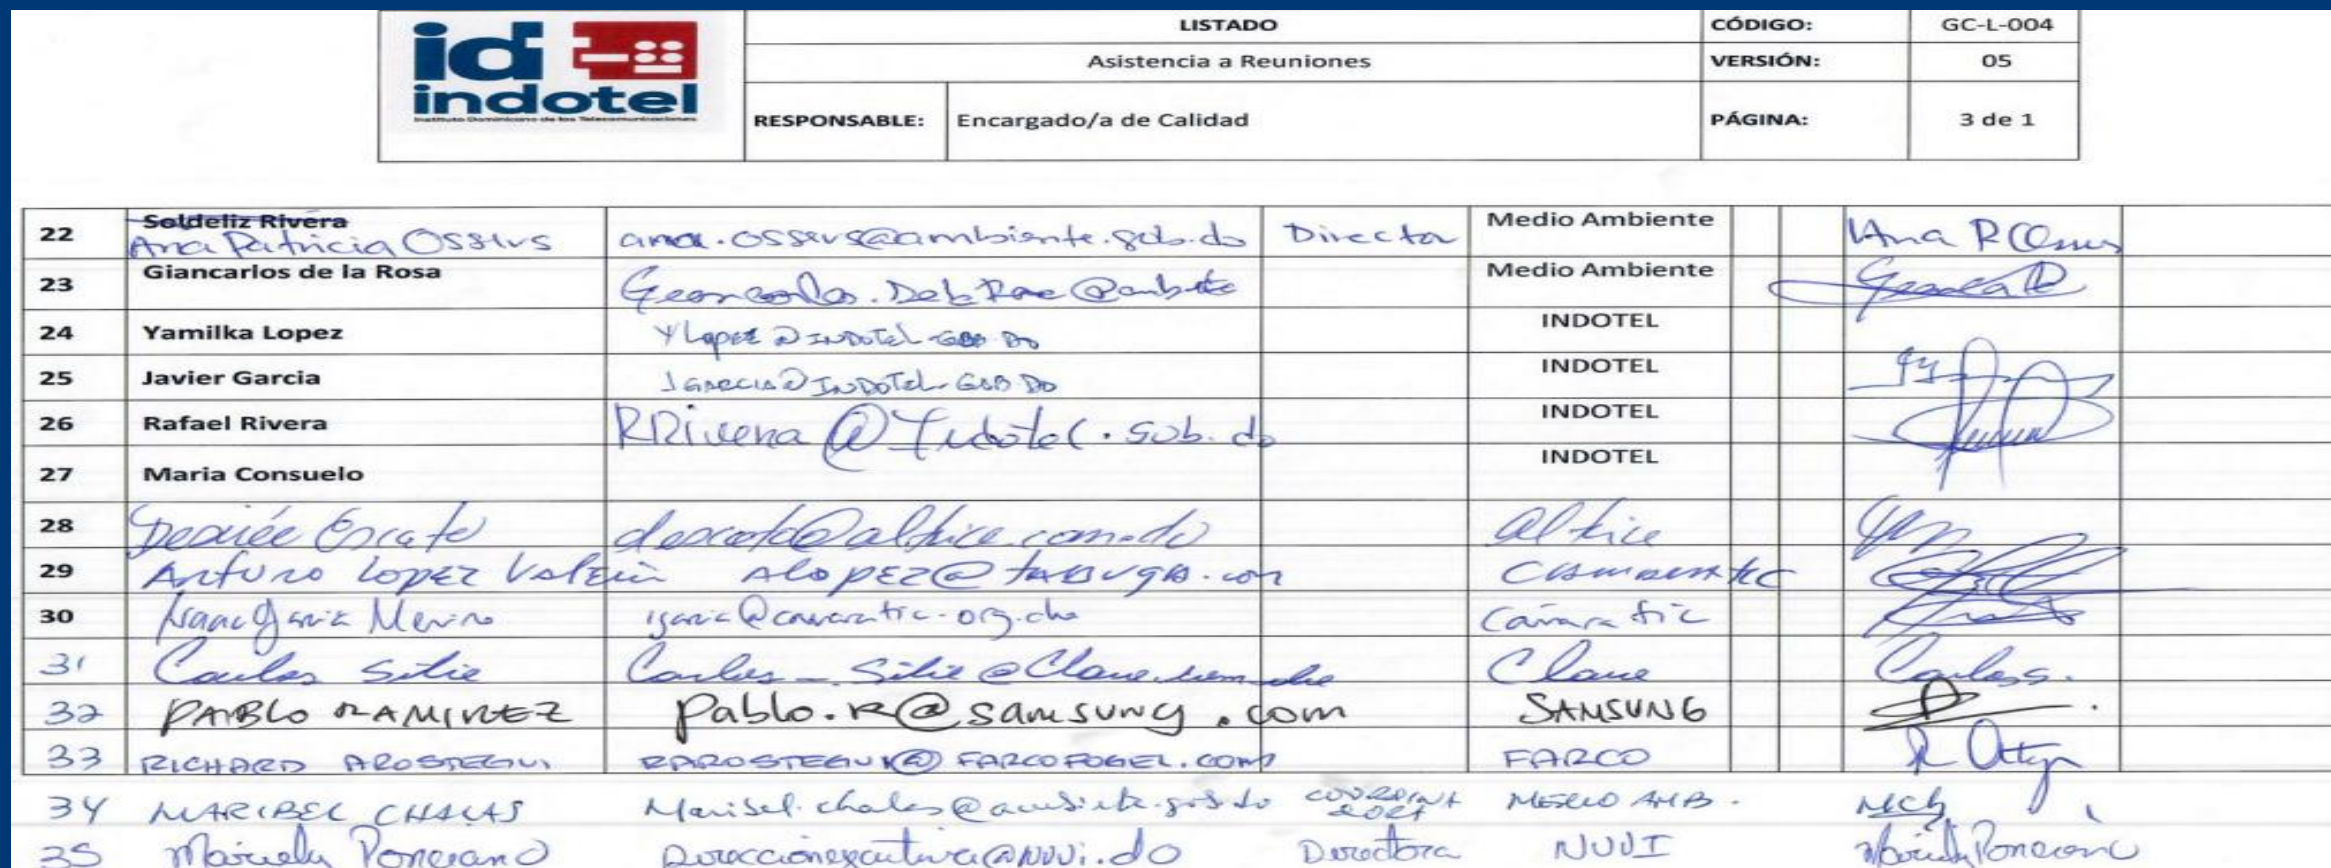 id
indotel
Instituto Dominicano de las Telecomunicaciones
LISTADO
CÓDIGO: GC-L-004
Asistencia a Reuniones
VERSIÓN: 05
RESPONSABLE: Encargado/a de Calidad
PÁGINA: 3 de 1
22 Soldeliz Rivera Medio Ambiente
Ana Patricia Ossers ana.ossers@ambiente.gob.do Director
23 Giancarlos de la Rosa Medio Ambiente
24 Yamilka Lopez Ylopez@INDOTEL.GOB.DO INDOTEL
25 Javier Garcia JGARCIA@INDOTEL.GOB.DO INDOTEL
26 Rafael Rivera RRivera@Indotel.gob.do INDOTEL
27 Maria Consuelo INDOTEL
28 descoto@altice.com.do altice
29 Arturo Lopez ALOPEZ@
30 Isaac Merino Camara tic
31 Carlos Silie Carlos_Silie@Claro.com.do Claro Carlos S.
32 PABLO RAMIREZ pablo.r@samsung.com SAMSUNG
33 RICHARD AROSTEGUI RAROSTEGUI@FARCOFOGEL.COM FARCO
34 MARIBEL CHALAS Maribel.chalas@ambiente.gob.do MEDIO AMB. MCh
35 Mariely Ponciano Direccionejecutiva@NUVI.do Directora NUVI Mariely Ponciano